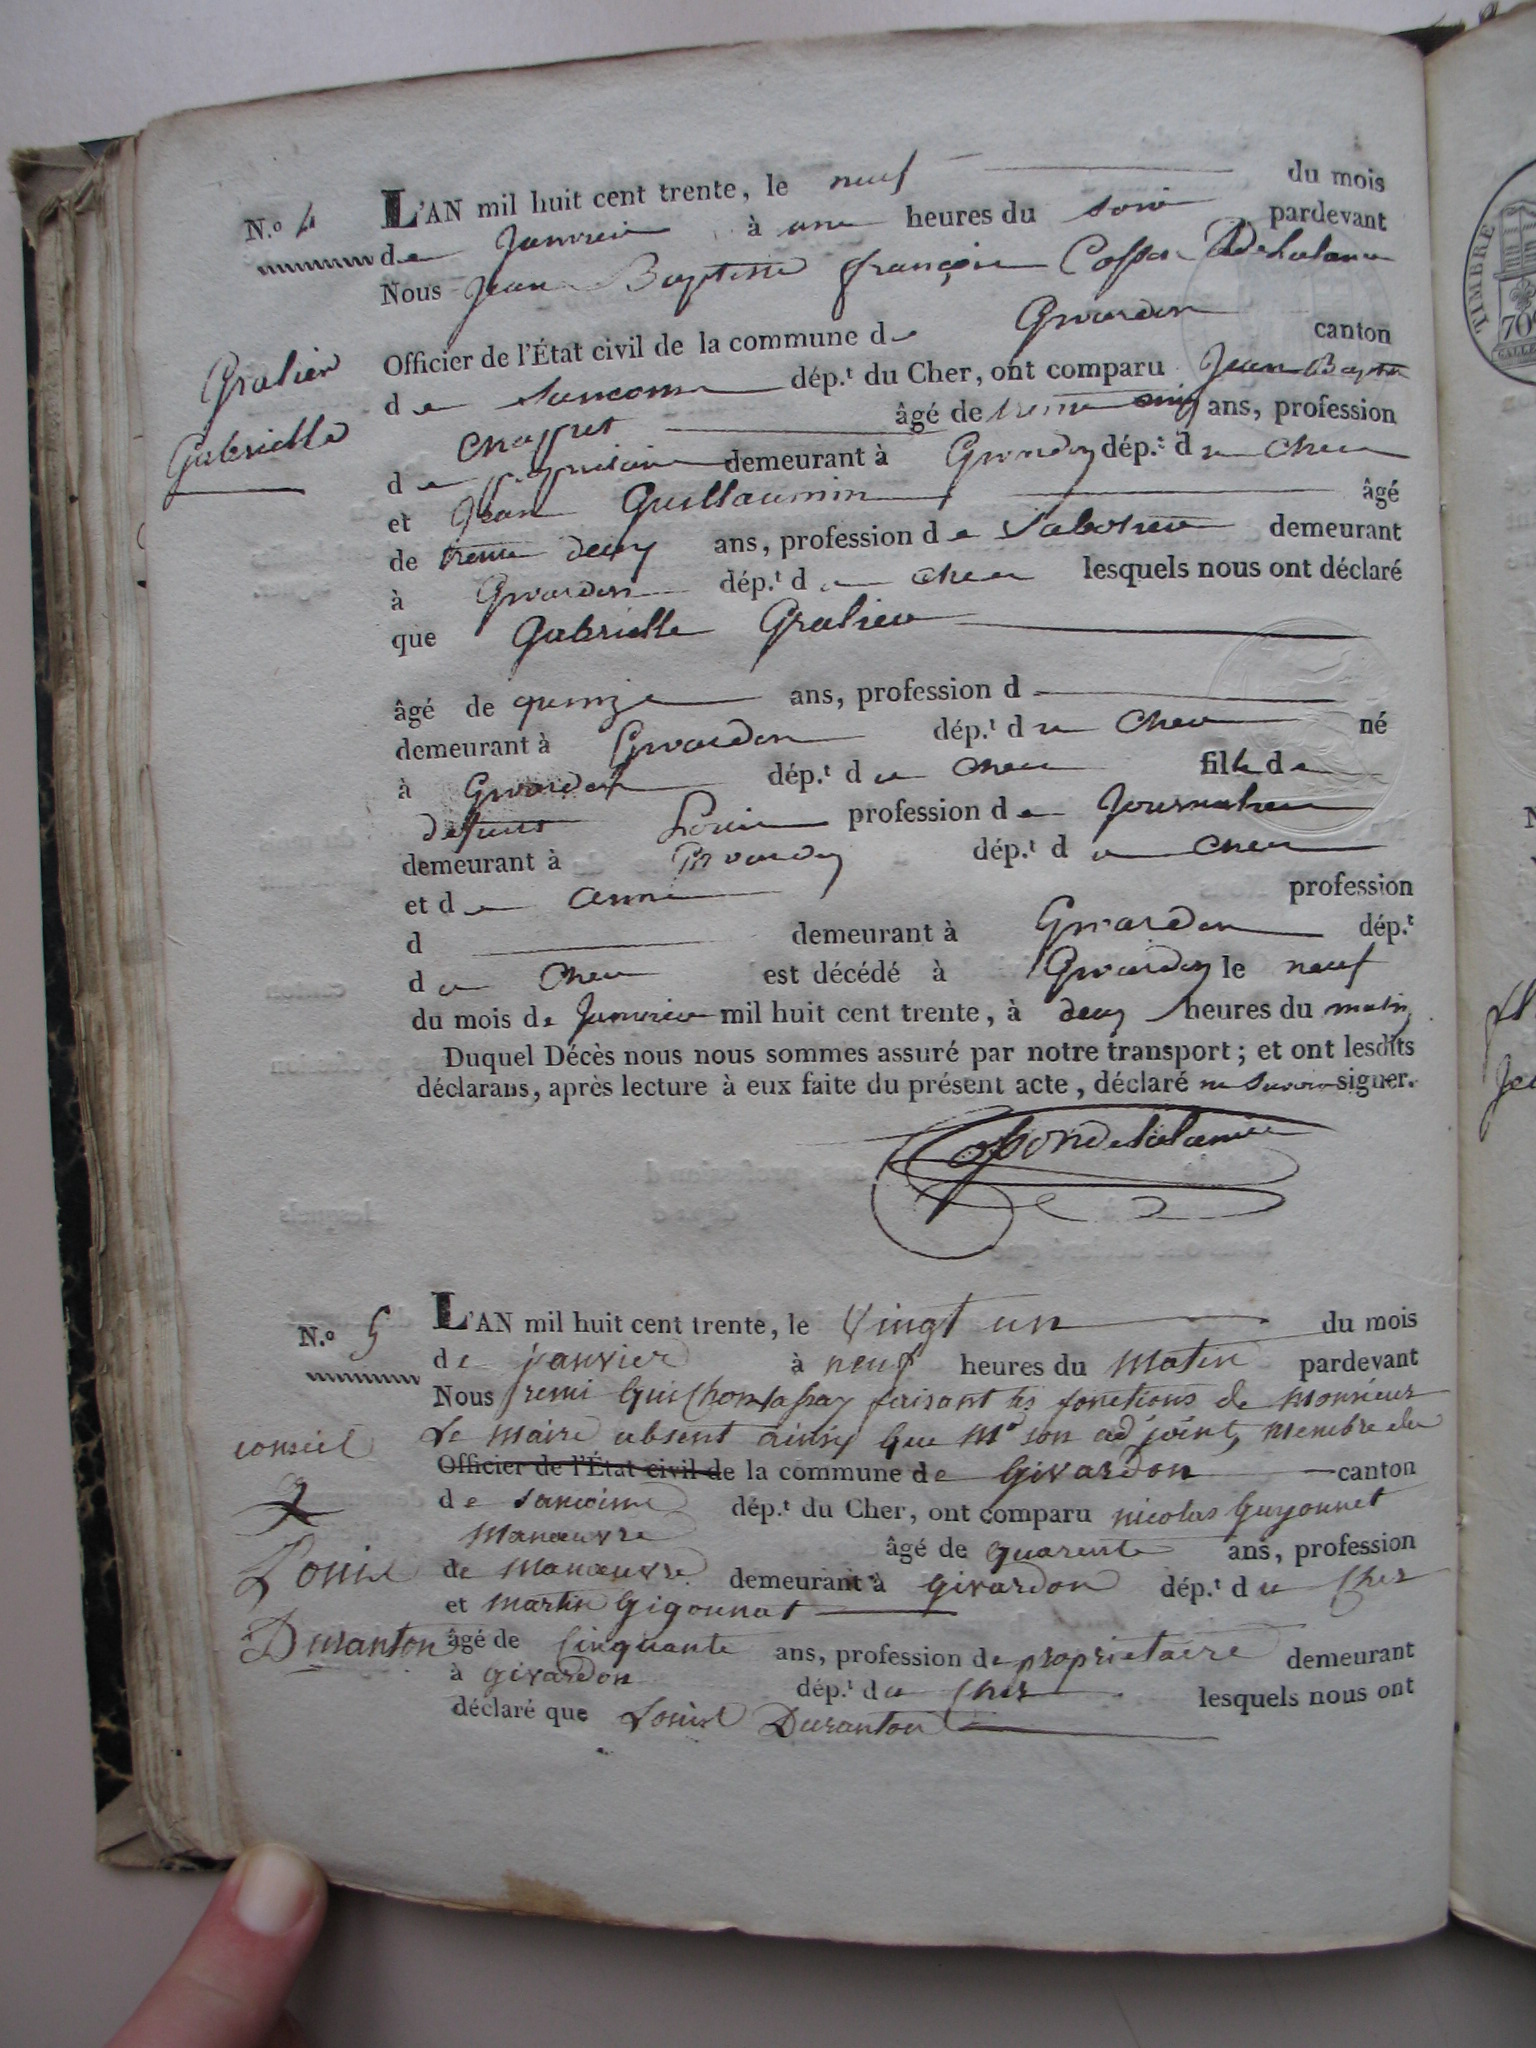 N.º 4
L'AN mil huit cent trente, le neuf du mois
de Janvier à une heures du soir pardevant
Nous Jean Baptiste françois Delalanne
Gralien
Gabrielle
Officier de l'État civil de la commune de Givardon canton
de Sancoins dép.t du Cher, ont comparu Jean Baptiste
âgé de trente ans, profession
de demeurant à Givardon dép.t du Cher
et Jean Guillaumin âgé
de trente deux ans, profession de Sabotier demeurant
à Givardon dép.t du Cher lesquels nous ont déclaré
que Gabrielle Gralien
âgé de quinze ans, profession d
demeurant à Givardon dép.t du Cher né
à Givardon dép.t du Cher fille de
défunt Louis profession de Journalier
demeurant à Givardon dép.t du Cher
et de anne profession
d demeurant à Givardon dép.t
du Cher est décédé à Givardon le neuf
du mois de Janvier mil huit cent trente, à deux heures du matin
Duquel Décès nous nous sommes assuré par notre transport; et ont lesdits
déclarans, après lecture à eux faite du présent acte, déclaré ne Savoir signer.
N.º 5
L'AN mil huit cent trente, le Vingt un du mois
de janvier à neuf heures du Matin pardevant
Nous remi faisant les fonctions de Monsieur
Le Maire absent ainsy que Mr son adjoint, Membre du
conseil
Officier de l'État civil de la commune de Givardon canton
de Sancoins dép.t du Cher, ont comparu nicolas Guyonnet
Manœuvre
âgé de quarente ans, profession
de Manœuvre demeurant à givardon dép.t du Cher
et Martin Gigonnat
Louise
Duranton
âgé de Cinquante ans, profession de propriétaire demeurant
à givardon dép.t du Cher lesquels nous ont
déclaré que Louise Duranton
TIMBRE
70